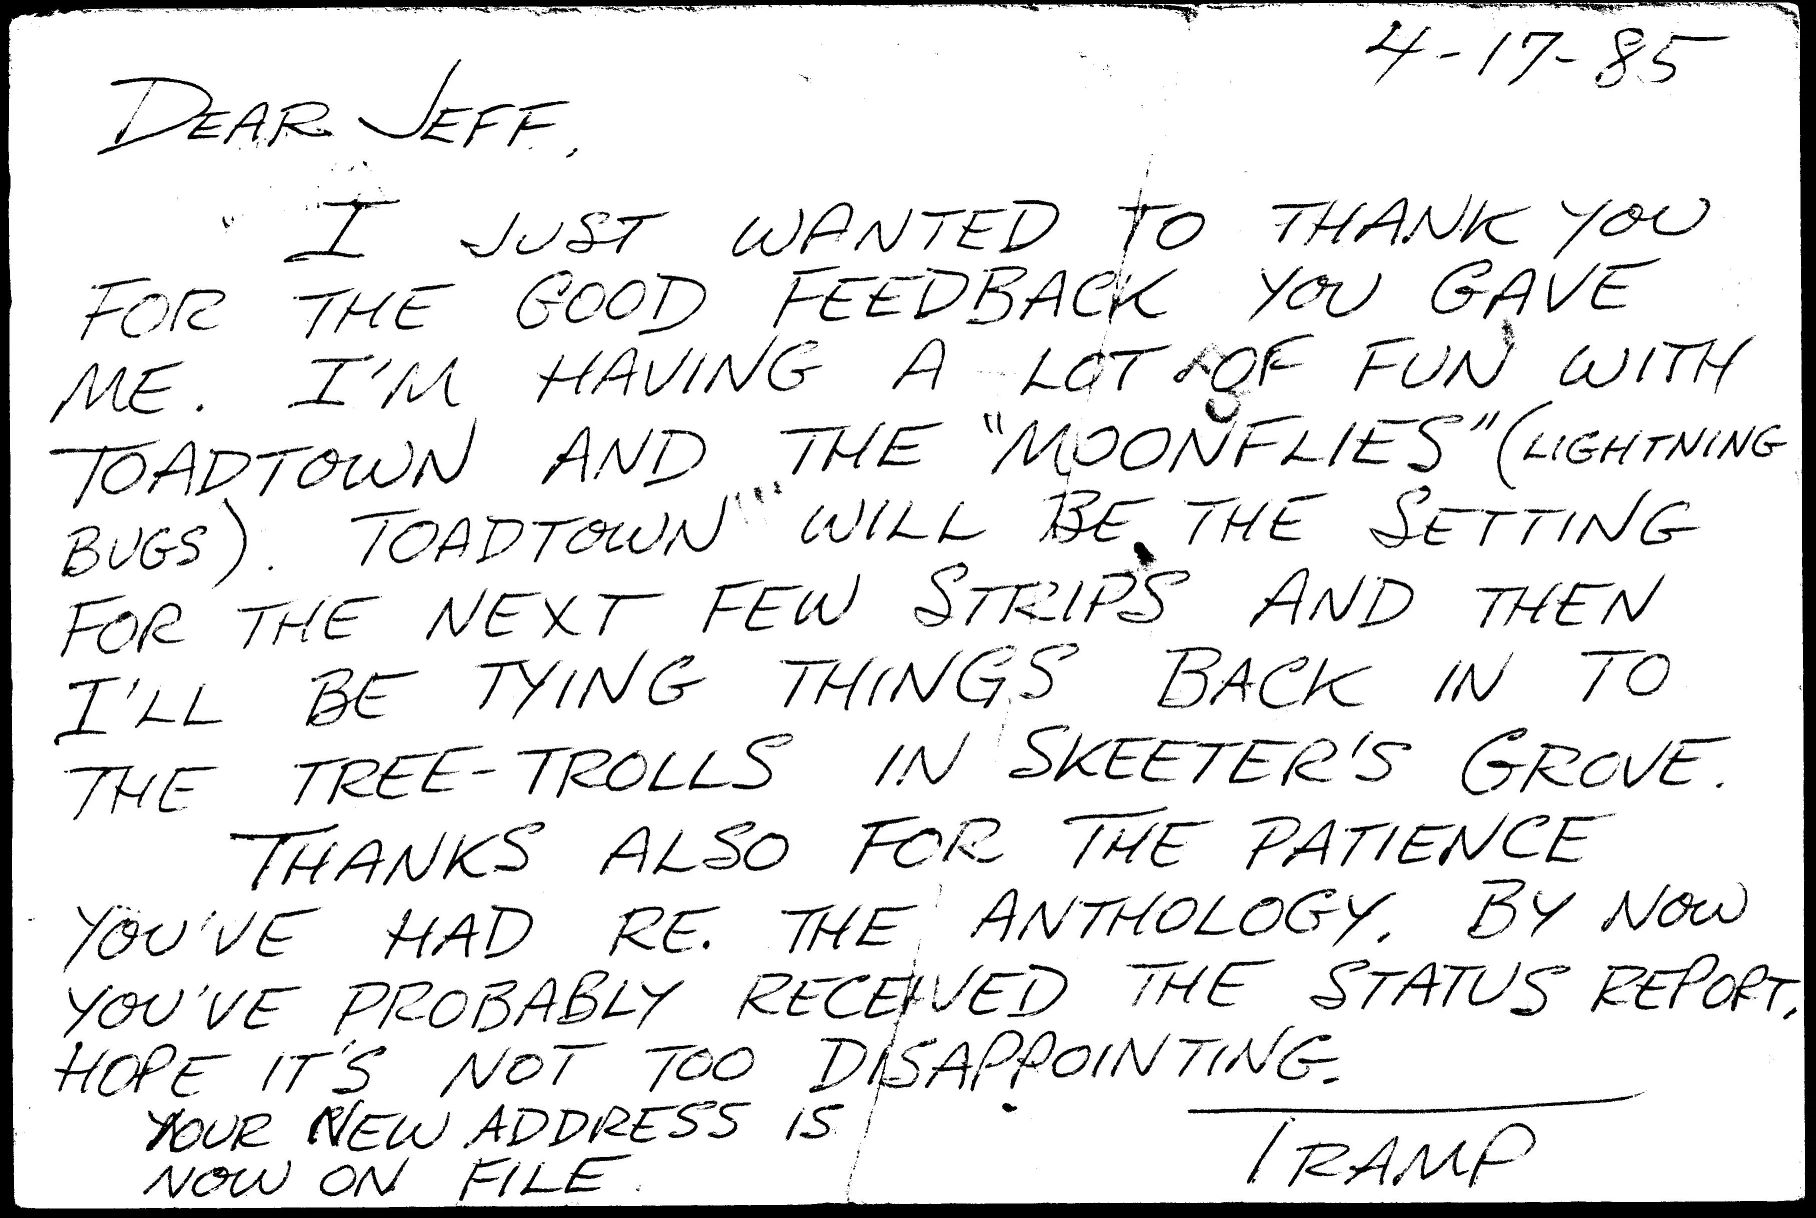 4-17-85
DEAR JEFF,
I JUST WANTED TO THANK YOU
FOR THE GOOD FEEDBACK YOU GAVE
ME. I'M HAVING A LOT OF FUN WITH
TOADTOWN AND THE "MOONFLIES" (LIGHTNING
BUGS). TOADTOWN WILL BE THE SETTING
FOR THE NEXT FEW STRIPS AND THEN
I'LL BE TYING THINGS BACK IN TO
THE TREE-TROLLS IN SKEETER'S GROVE.
THANKS ALSO FOR THE PATIENCE
YOU'VE HAD RE. THE ANTHOLOGY. BY NOW
YOU'VE PROBABLY RECEIVED THE STATUS REPORT,
HOPE IT'S NOT TOO DISAPPOINTING.
YOUR NEW ADDRESS IS
NOW ON FILE.
TRAMP